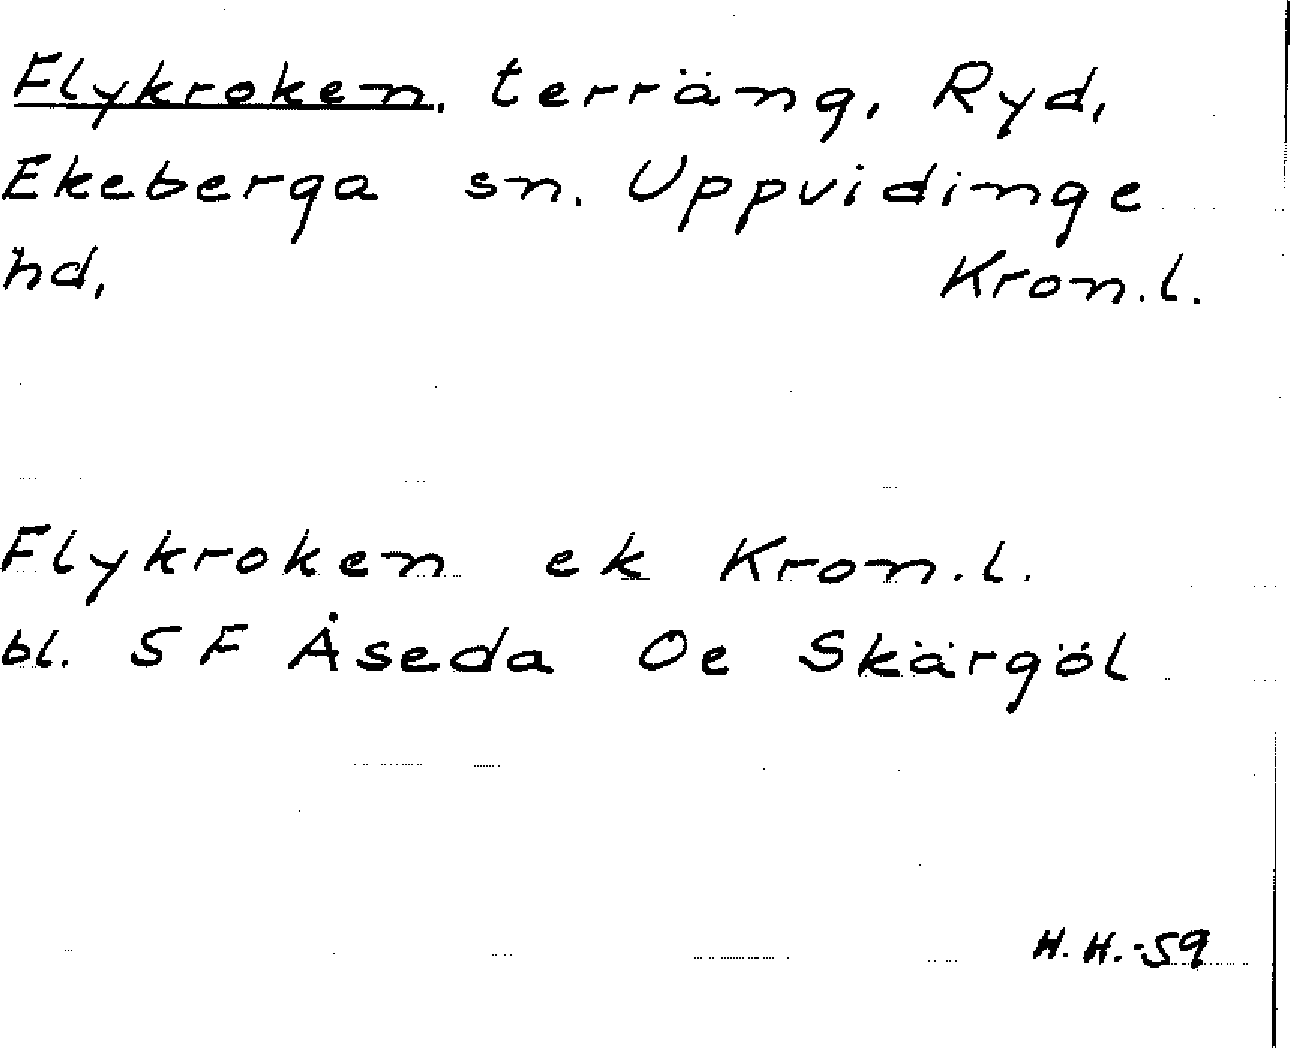 Flykroken, terräng, Ryd,
Ekeberga sn. Uppvidinge
hd, Kron.l.
Flykroken ek Kron.l.
bl. 5 F Åseda Oe Skärgöl
H.H.-59